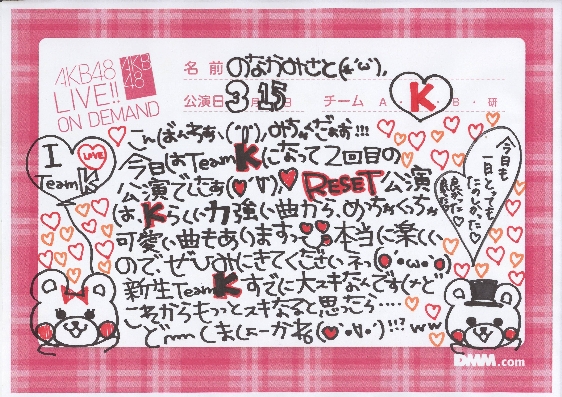 AKB48
LIVE!!
ON DEMAND
AKB
48
名前 のなかみさと(*'ω'),
公演日 3月15日 チーム A・K・B・研
こんばんちわ、('∀'),みちゃだぉ!!!
今日はTeamKになって2回目の
公演でしたぁ(♥'∀')♥RESET公演
は、Kらしい力強い曲から、めちゃくちゃ
可愛い曲もありますっ 本当に楽しい
ので、ぜひみにきてくださいネっ(●'ω'●)
新生TeamKすでに大スキなんですけど
これからもっっとスキなると思ったら…
ど〜しましょーかね(♥'∀'●)!!?ww
I LOVE
TeamK
今日も
一日とっても
たのしかった♡
良かった
良かった
DMM.com